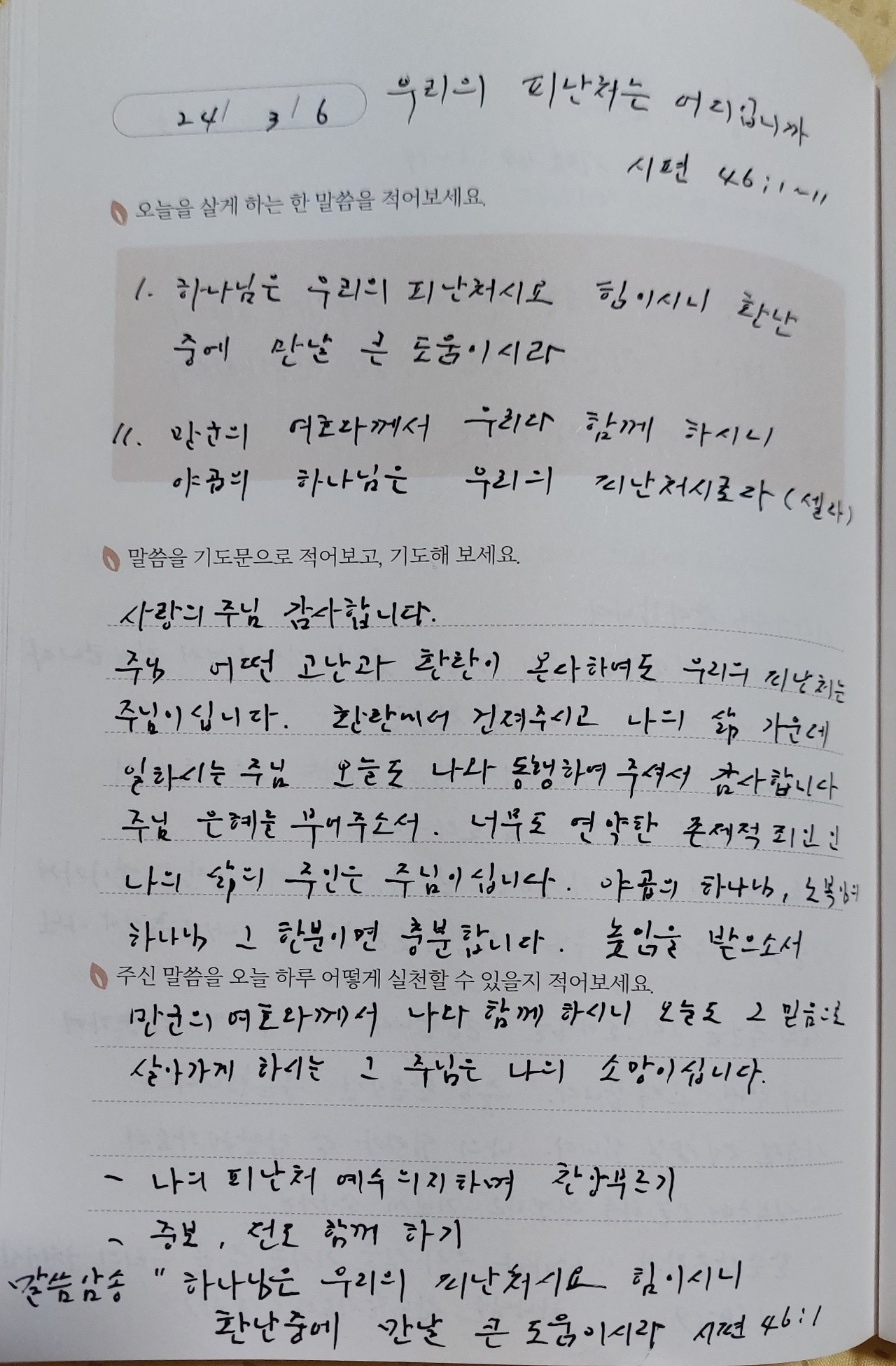 24/ 3/ 6 우리의 피난처는 어디입니까
시편 46:1~11
오늘을 살게 하는 한 말씀을 적어보세요.
1. 하나님은 우리의 피난처시요 힘이시니 환난
중에 만날 큰 도움이시라
11. 만군의 여호와께서 우리와 함께 하시니
야곱의 하나님은 우리의 피난처시로라 (셀라)
말씀을 기도문으로 적어보고, 기도해 보세요.
사랑의 주님 감사합니다.
주님 어떤 고난과 환란이 온다하여도 우리의 피난처는
주님이십니다. 환란에서 건져주시고 나의 삶 가운데
일하시는 주님 오늘도 나와 동행하여 주셔서 감사합니다
주님 은혜를 부어주소서. 너무도 연약한 존제적 죄인인
나의 삶의 주인은 주님이십니다. 야곱의 하나님,
하나님 그 한분이면 충분합니다. 높임을 받으소서
주신 말씀을 오늘 하루 어떻게 실천할 수 있을지 적어보세요.
만군의 여호와께서 나와 함께 하시니 오늘도 그 믿음으로
살아가게 하시는 그 주님은 나의 소망이십니다.
- 나의 피난처 예수 의지하며 찬양부르기
- 중보, 전도 함께 하기
말씀암송 " 하나님은 우리의 피난처시요 힘이시니
환난중에 만날 큰 도움이시라 시편 46:1